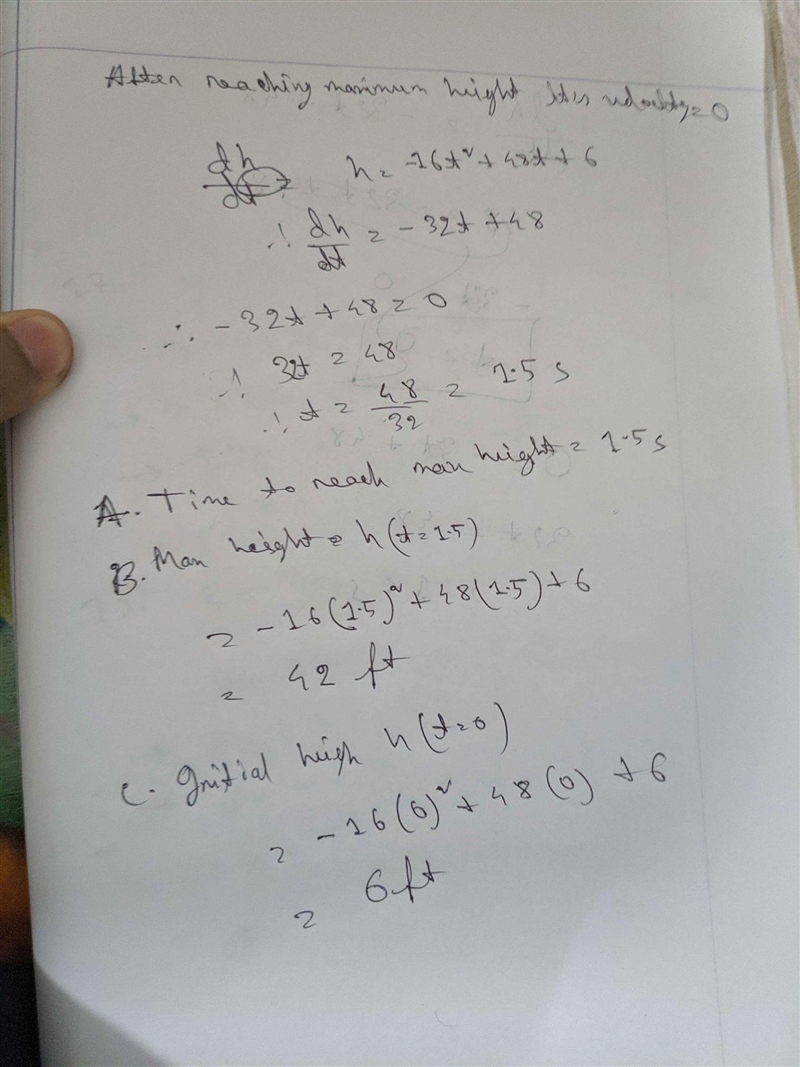 After reaching maximum height it's velocity = 0
dh/dt =
h = -16t² + 48t + 6
∴ dh/dt = -32t + 48
∴ -32t + 48 = 0
∴ 32t = 48
∴ t = 48/32 = 1.5 s
A. Time to reach max height = 1.5 s
B. Max height = h(t = 1.5)
= -16(1.5)² + 48(1.5) + 6
= 42 ft
C. Initial high h(t=0)
= -16(0)² + 48(0) + 6
= 6 ft